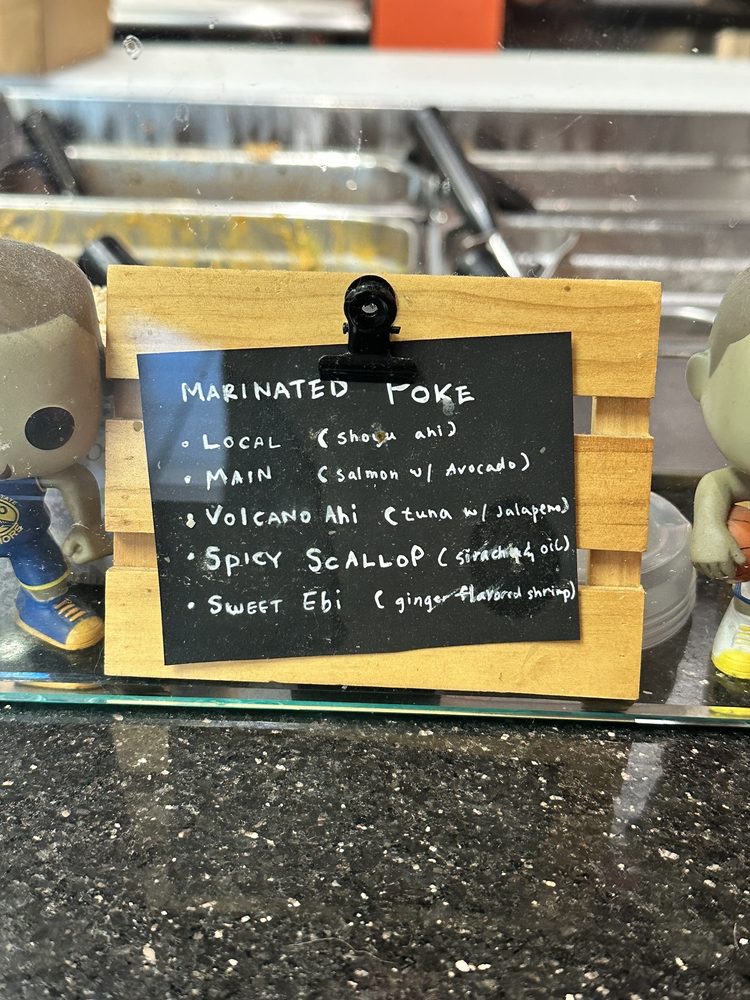 MARINATED POKE
• LOCAL (shoyu ahi)
• MAIN (salmon w/ Avocado)
• VOLCANO Ahi (tuna w/ Jalapeno)
• SPICY SCALLOP (siracha & oil)
• SWEET Ebi (ginger flavored shrimp)